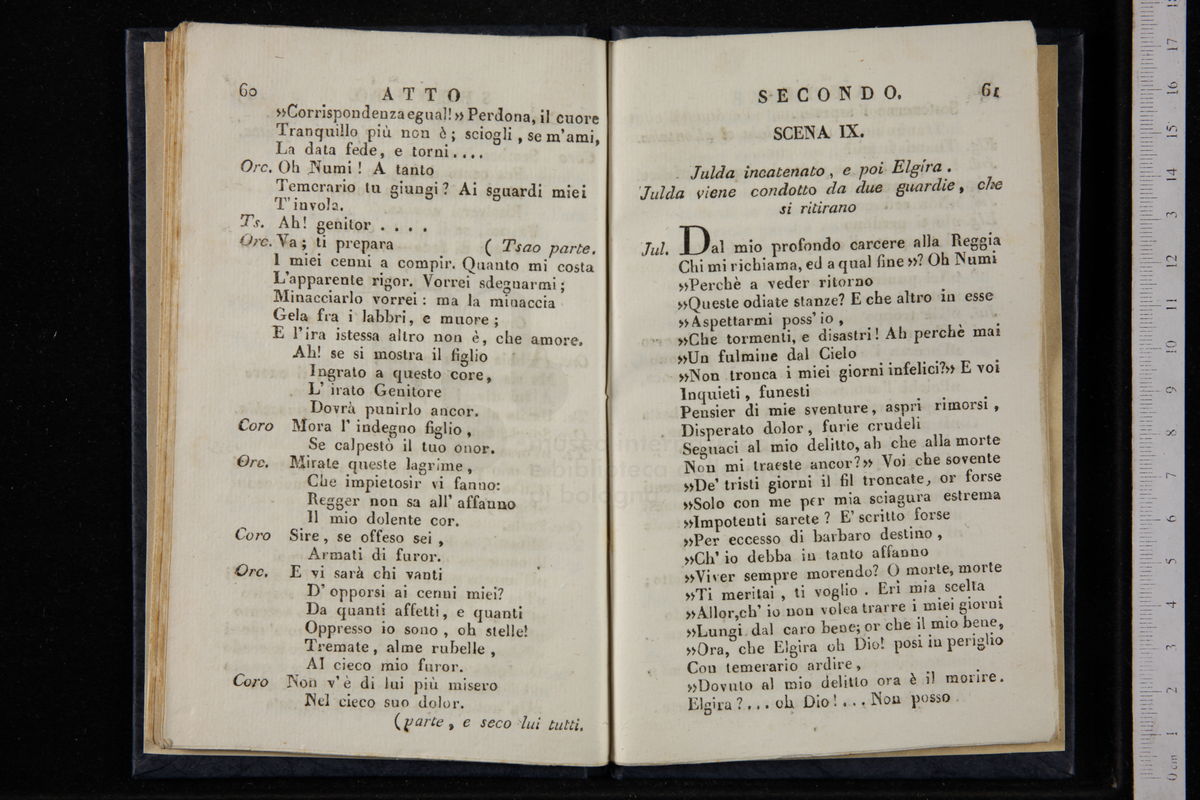 60
ATTO
»Corrispondenza egual! » Perdona, il cuore
Tranquillo più non è ; sciogli , se m'ami,
La data fede, e torni....
Orc. Oh Numi ! A tanto
Temerario tu giungi ? Ai sguardi miei
T'invola.
Ts. Ah! genitor . . . .
Orc. Va ; ti prepara ( Tsao parte.
I miei cenni a compir. Quanto mi costa
L'apparente rigor. Vorrei sdegnarmi ;
Minacciarlo vorrei : ma la minaccia
Gela fra i labbri, e muore ;
E l'ira istessa altro non è, che amore.
Ah! se si mostra il figlio
Ingrato a questo core,
L' irato Genitore
Dovrà punirlo ancor.
Coro Mora l' indegno figlio ,
Se calpestò il tuo onor.
Orc. Mirate queste lagrime ,
Che impietosir vi fanno:
Regger non sa all' affanno
Il mio dolente cor.
Coro Sire , se offeso sei ,
Armati di furor.
Orc. E vi sarà chi vanti
D' opporsi ai cenni miei?
Da quanti affetti, e quanti
Oppresso io sono , oh stelle!
Tremate , alme rubelle ,
Al cieco mio furor.
Coro Non v'è di lui più misero
Nel cieco suo dolor.
(parte , e seco lui tutti.
SECONDO.
61
SCENA IX.
Julda incatenato , e poi Elgira .
Julda viene condotto da due guardie, che
si ritirano
Jul. Dal mio profondo carcere alla Reggia
Chi mi richiama, ed a qual fine »? Oh Numi
»Perchè a veder ritorno
»Queste odiate stanze? E che altro in esse
»Aspettarmi poss' io ,
»Che tormenti, e disastri! Ah perchè mai
»Un fulmine dal Cielo
»Non tronca i miei giorni infelici?» E voi
Inquieti , funesti
Pensier di mie sventure, aspri rimorsi ,
Disperato dolor , furie crudeli
Seguaci al mio delitto, ah che alla morte
Non mi traeste ancor?» Voi che sovente
»De' tristi giorni il fil troncate, or forse
»Solo con me per mia sciagura estrema
»Impotenti sarete ? E' scritto forse
»Per eccesso di barbaro destino ,
»Ch' io debba in tanto affanno
»Viver sempre morendo? O morte, morte
»Ti meritai , ti voglio . Eri mia scelta
»Allor,ch' io non volea trarre i miei giorni
»Lungi dal caro bene; or che il mio bene,
»Ora, che Elgira oh Dio! posi in periglio
Con temerario ardire ,
»Dovuto al mio delitto ora è il morire.
Elgira ?... oh Dio !... Non posso